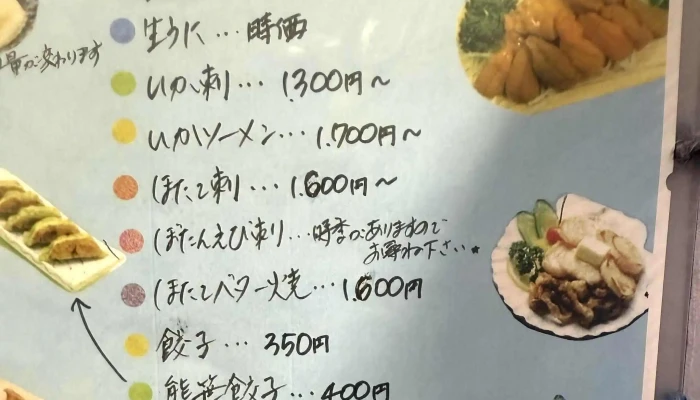 生うに…時価
量が変わります
いか刺…1.300円～
いかソーメン…1.700円～
ほたて刺…1.600円～
ぼたんえび刺り…時季がありますので
お尋ね下さい★
ほたてバター焼…1.600円
餃子…350円
熊笹餃子…400円